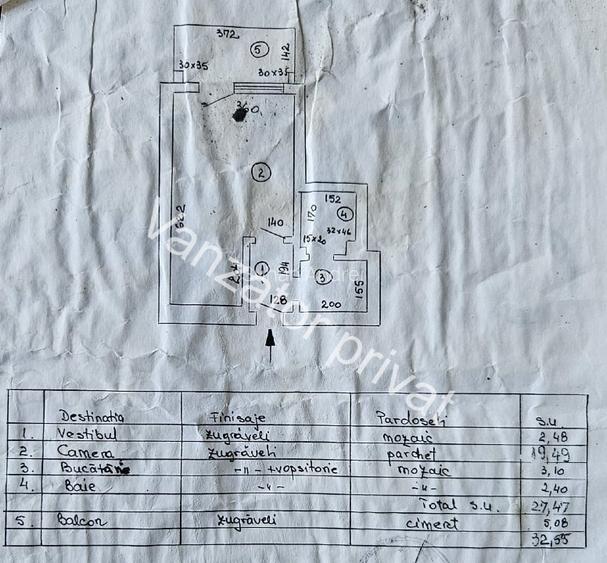 372
5
142
30x35
30x35
2
152
4
170
140
32x46
15x20
1
194
3
155
128
200
Vanzator privat
Destinatia Finisaje Pardoseli S.U.
1. Vestibul zugrăveli mozaic 2,48
2. Camera zugrăveli parchet 19,49
3. Bucătărie -"- +vopsitorie mozaic 3,10
4. Baie -"- -"- 2,40
Total S.U. 27,47
5. Balcon zugrăveli ciment 5,08
32,55